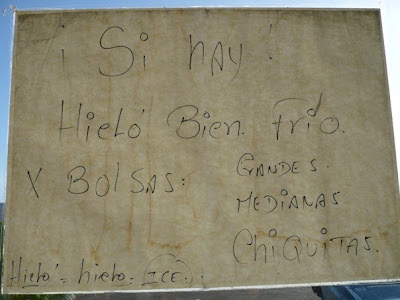 ¡ Si hay !
Hielo Bien. Frio.
X BOlSAS:
GRANDES.
MEDIANAS
CHiQUITAS.
Hielo = hielo - ICE..